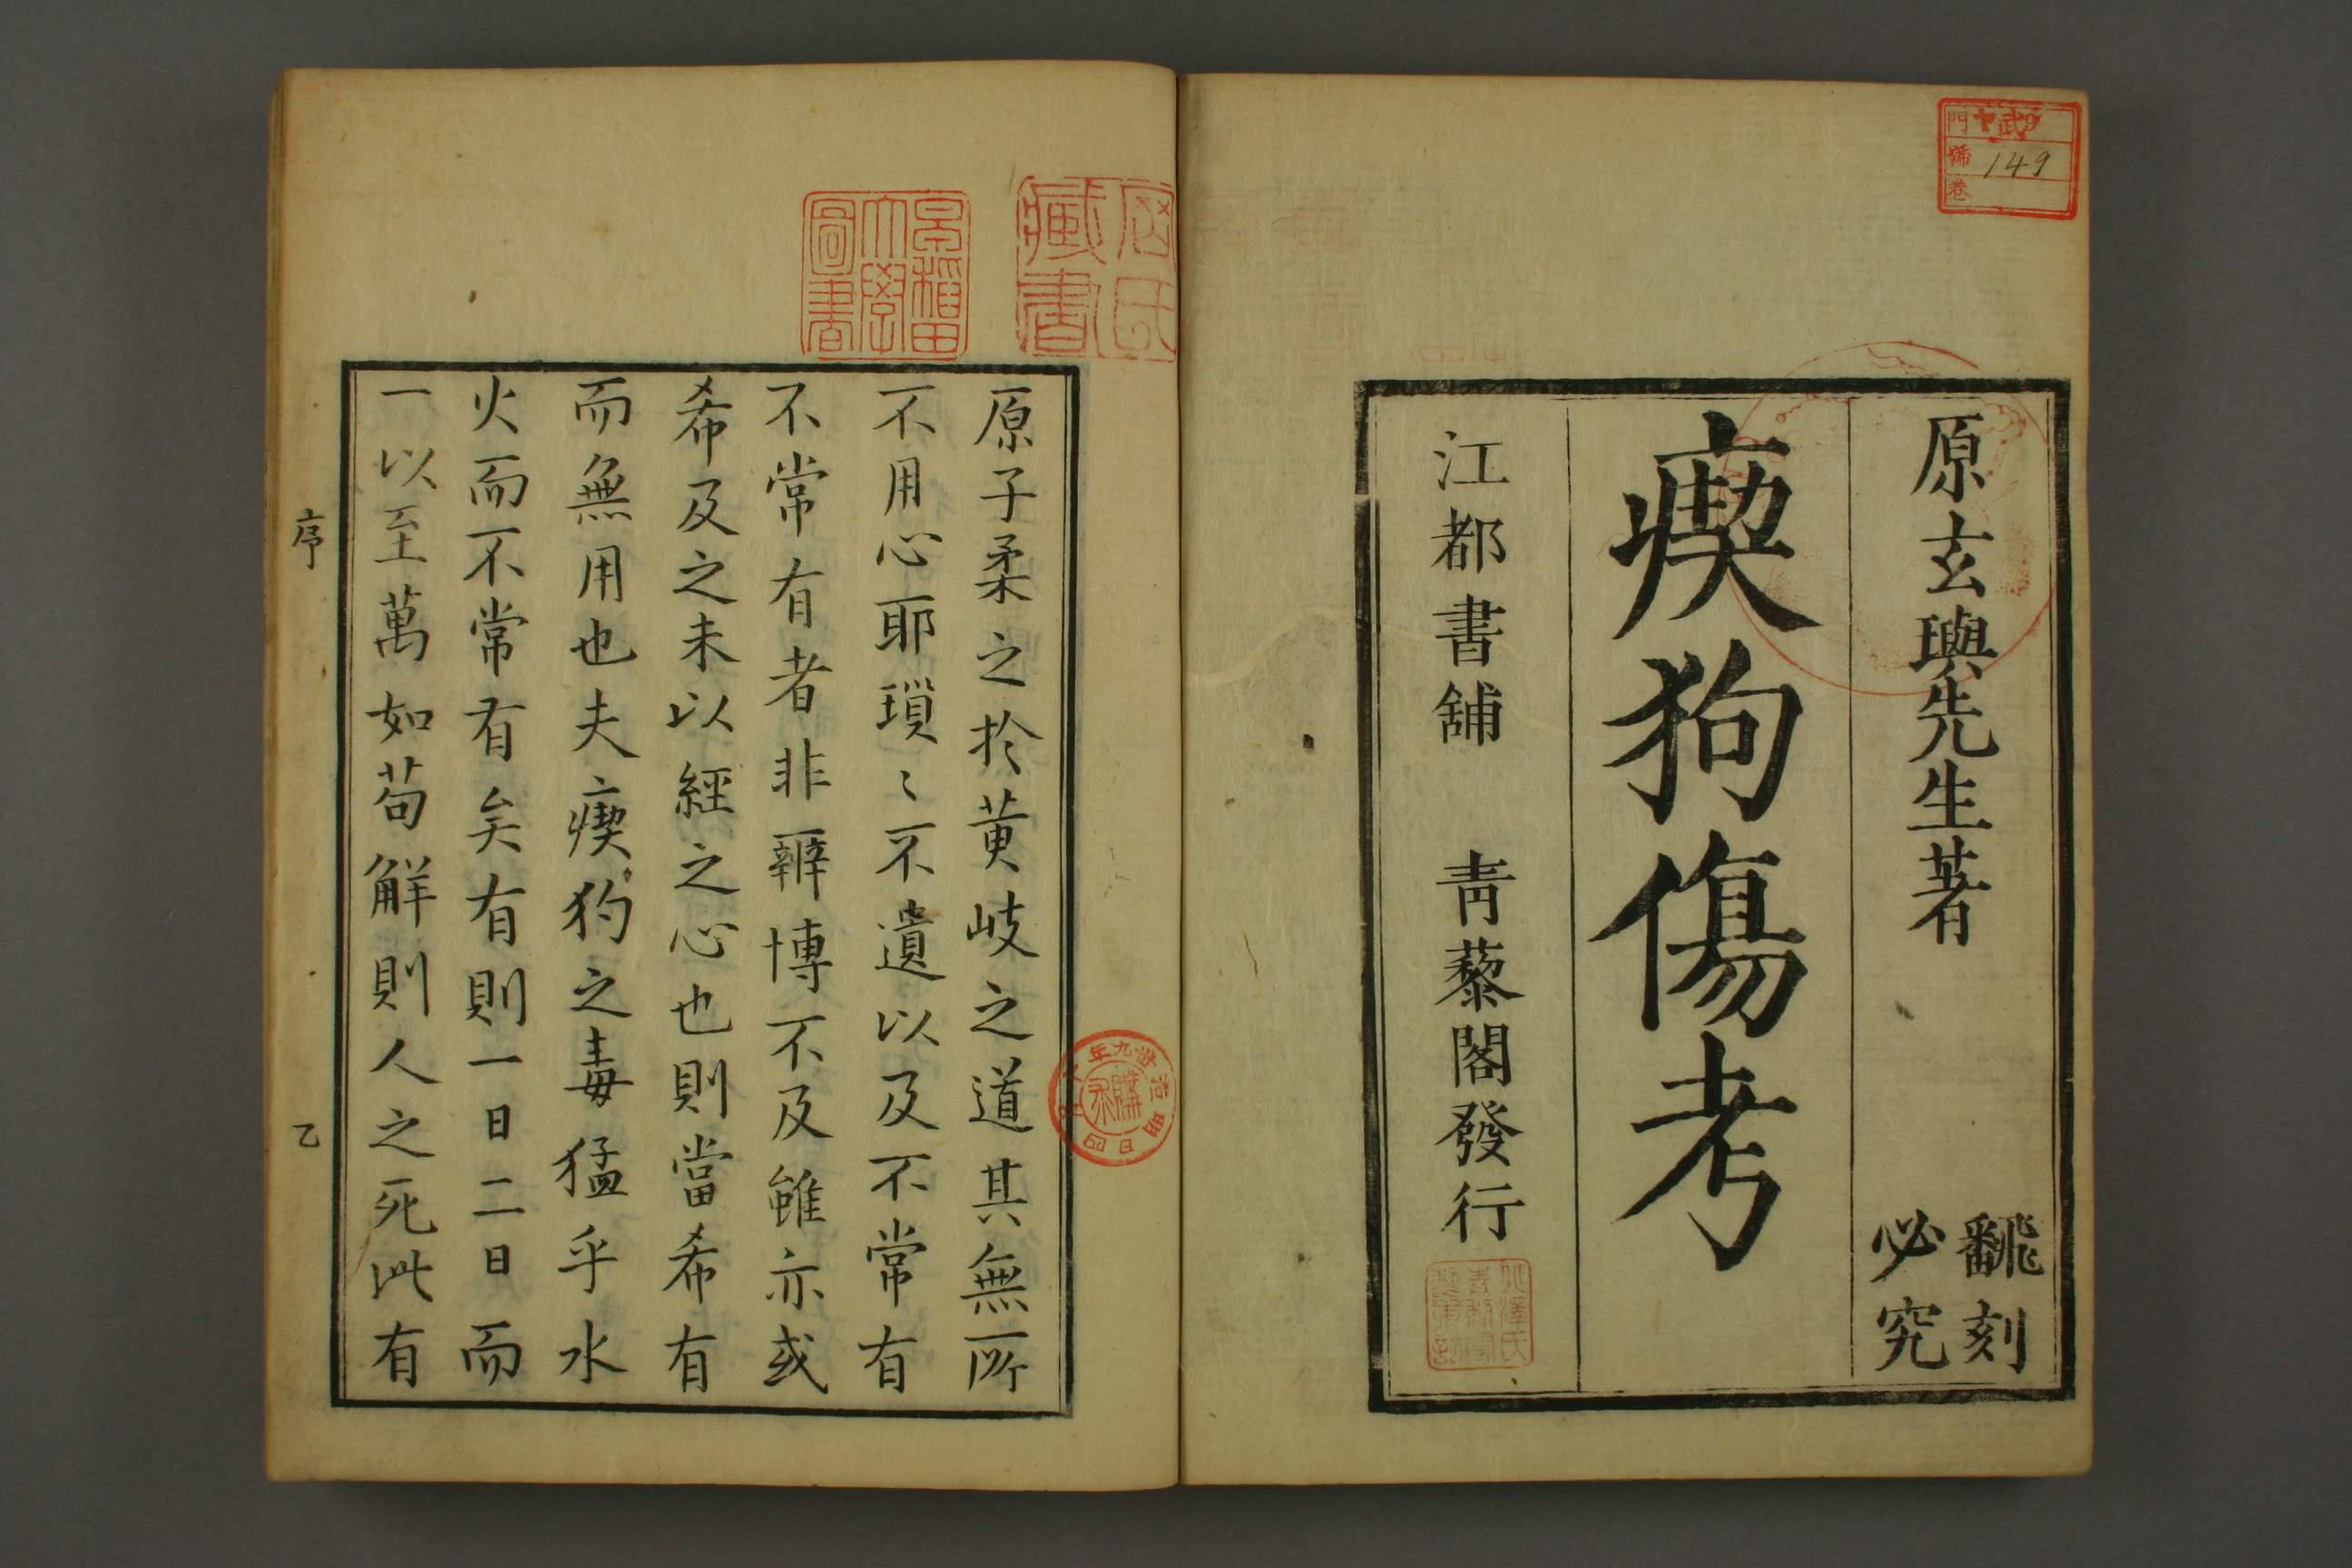 門
號 149
卷
原玄璵先生著
翻刻
必究
瘈狗傷考
江都書舖 青藜閣發行
藏書
早稻田
大學
圖書
原子柔之於黄岐之道其無所
不用心耶瑣〻不遺以及不常有
不常有者非辨博不及雖亦或
希及之未以經之心也則當希有
而無用也夫瘈狗之毒猛乎水
火而不常有矣有則一日二日而
一以至萬如苟解則人之死此有
序
乙